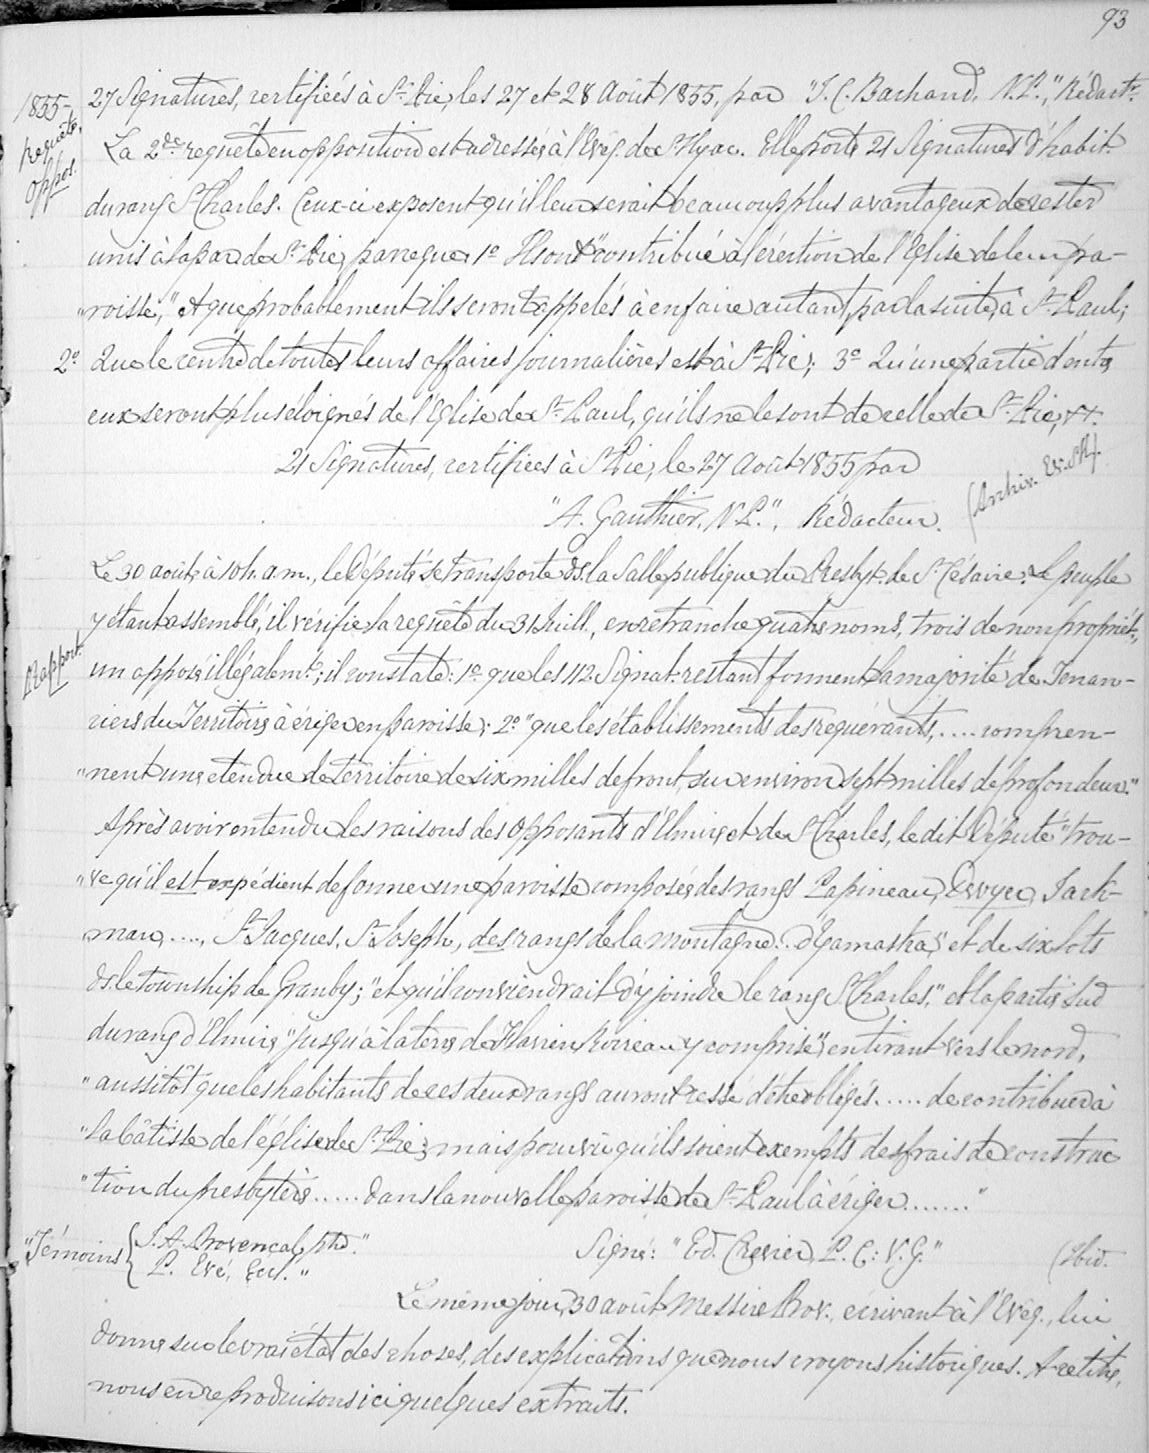 93
1855-
requête,
oppos.
27 Signatures, certifiées à St. Pie, les 27 et 28 Août 1855, par "J. C. Bachand, N.P.," Rédactr.
La 2de requête en opposition est adressée à l'Evêq. de St Hyac. Elle porte 21 Signatures d'habit.
du rang St Charles. Ceux-ci exposent qu'il leur serait beaucoup plus avantageux de rester
unis à la par. de St. Pie, parceque, 1o Ils ont "contribué à l'érection de l'Eglise de leur pa-
"roisse," et que probablement ils seront appelés à en faire autant, par la suite, à St. Paul;
2o Que le centre de toutes leurs affaires journalières est à St. Pie; 3o Qu'une partie d'entre
eux seront plus éloignés de l'Eglise de St. Paul, qu'ils ne le sont de celle de St. Pie, &.
21 Signatures, certifiées à St Pie, le 27 Août 1855 par
"A. Gauthier, N.P.", Rédacteur.
(Archiv. Ev. St H.)
Le 30 août, à 10h. a.m., le Député se transporte ds. la Salle publique du Presbyt. de St Césaire. Le peuple
y étant assemblé, il vérifie la requête du 31 Juill., en retranche quatre noms, trois de non propriét.,
Rapport.
un apposé illégalemt.; il constate: 1o que les 112 Signat. restant forment la majorité de Tenan-
ciers du Territoire à ériger en paroisse; 2o "que les établissements des requérants, .... compren-
"nent une étendue de territoire de six milles de front, sur environ sept milles de profondeur."
Après avoir entendu les raisons des Opposants d'Elmire et de St Charles, le dit Député "trou-
"ve qu'il est expédient de former une paroisse composée des rangs Papineau, Deroyer, Jack-
man, ...., St. Jacques, St. Joseph, des rangs de la montagne.. d'Yamaska," et de six lots
ds. le township de Granby; "et qu'il conviendrait d'y joindre le rang St Charles," et la partie Sud
du rang d'Elmire "jusqu'à la terre de Flavien Poireau y comprise", en tirant vers le nord,
"aussitôt que les habitants de ces deux rangs auront cessé d'être obligés ..... de contribuer à
"la bâtisse de l'église de St. Pie; mais pourvu qu'ils soient exempts des frais de construc
"tion du presbytère ...... dans la nouvelle paroisse de St. Paul à ériger ......."
"Témoins { J. A. Provencal, ptre."
P. Evé, Eccl."
Signé: "Ed. Crevier, P. C: V. G."
(Ibid.
Le même jour, 30 août, Messire Prov., écrivant à l'Evêq., lui
donne sur le vrai état des choses, des explications que nous croyons historiques. A ce titre,
nous en reproduisons ici quelques extraits.